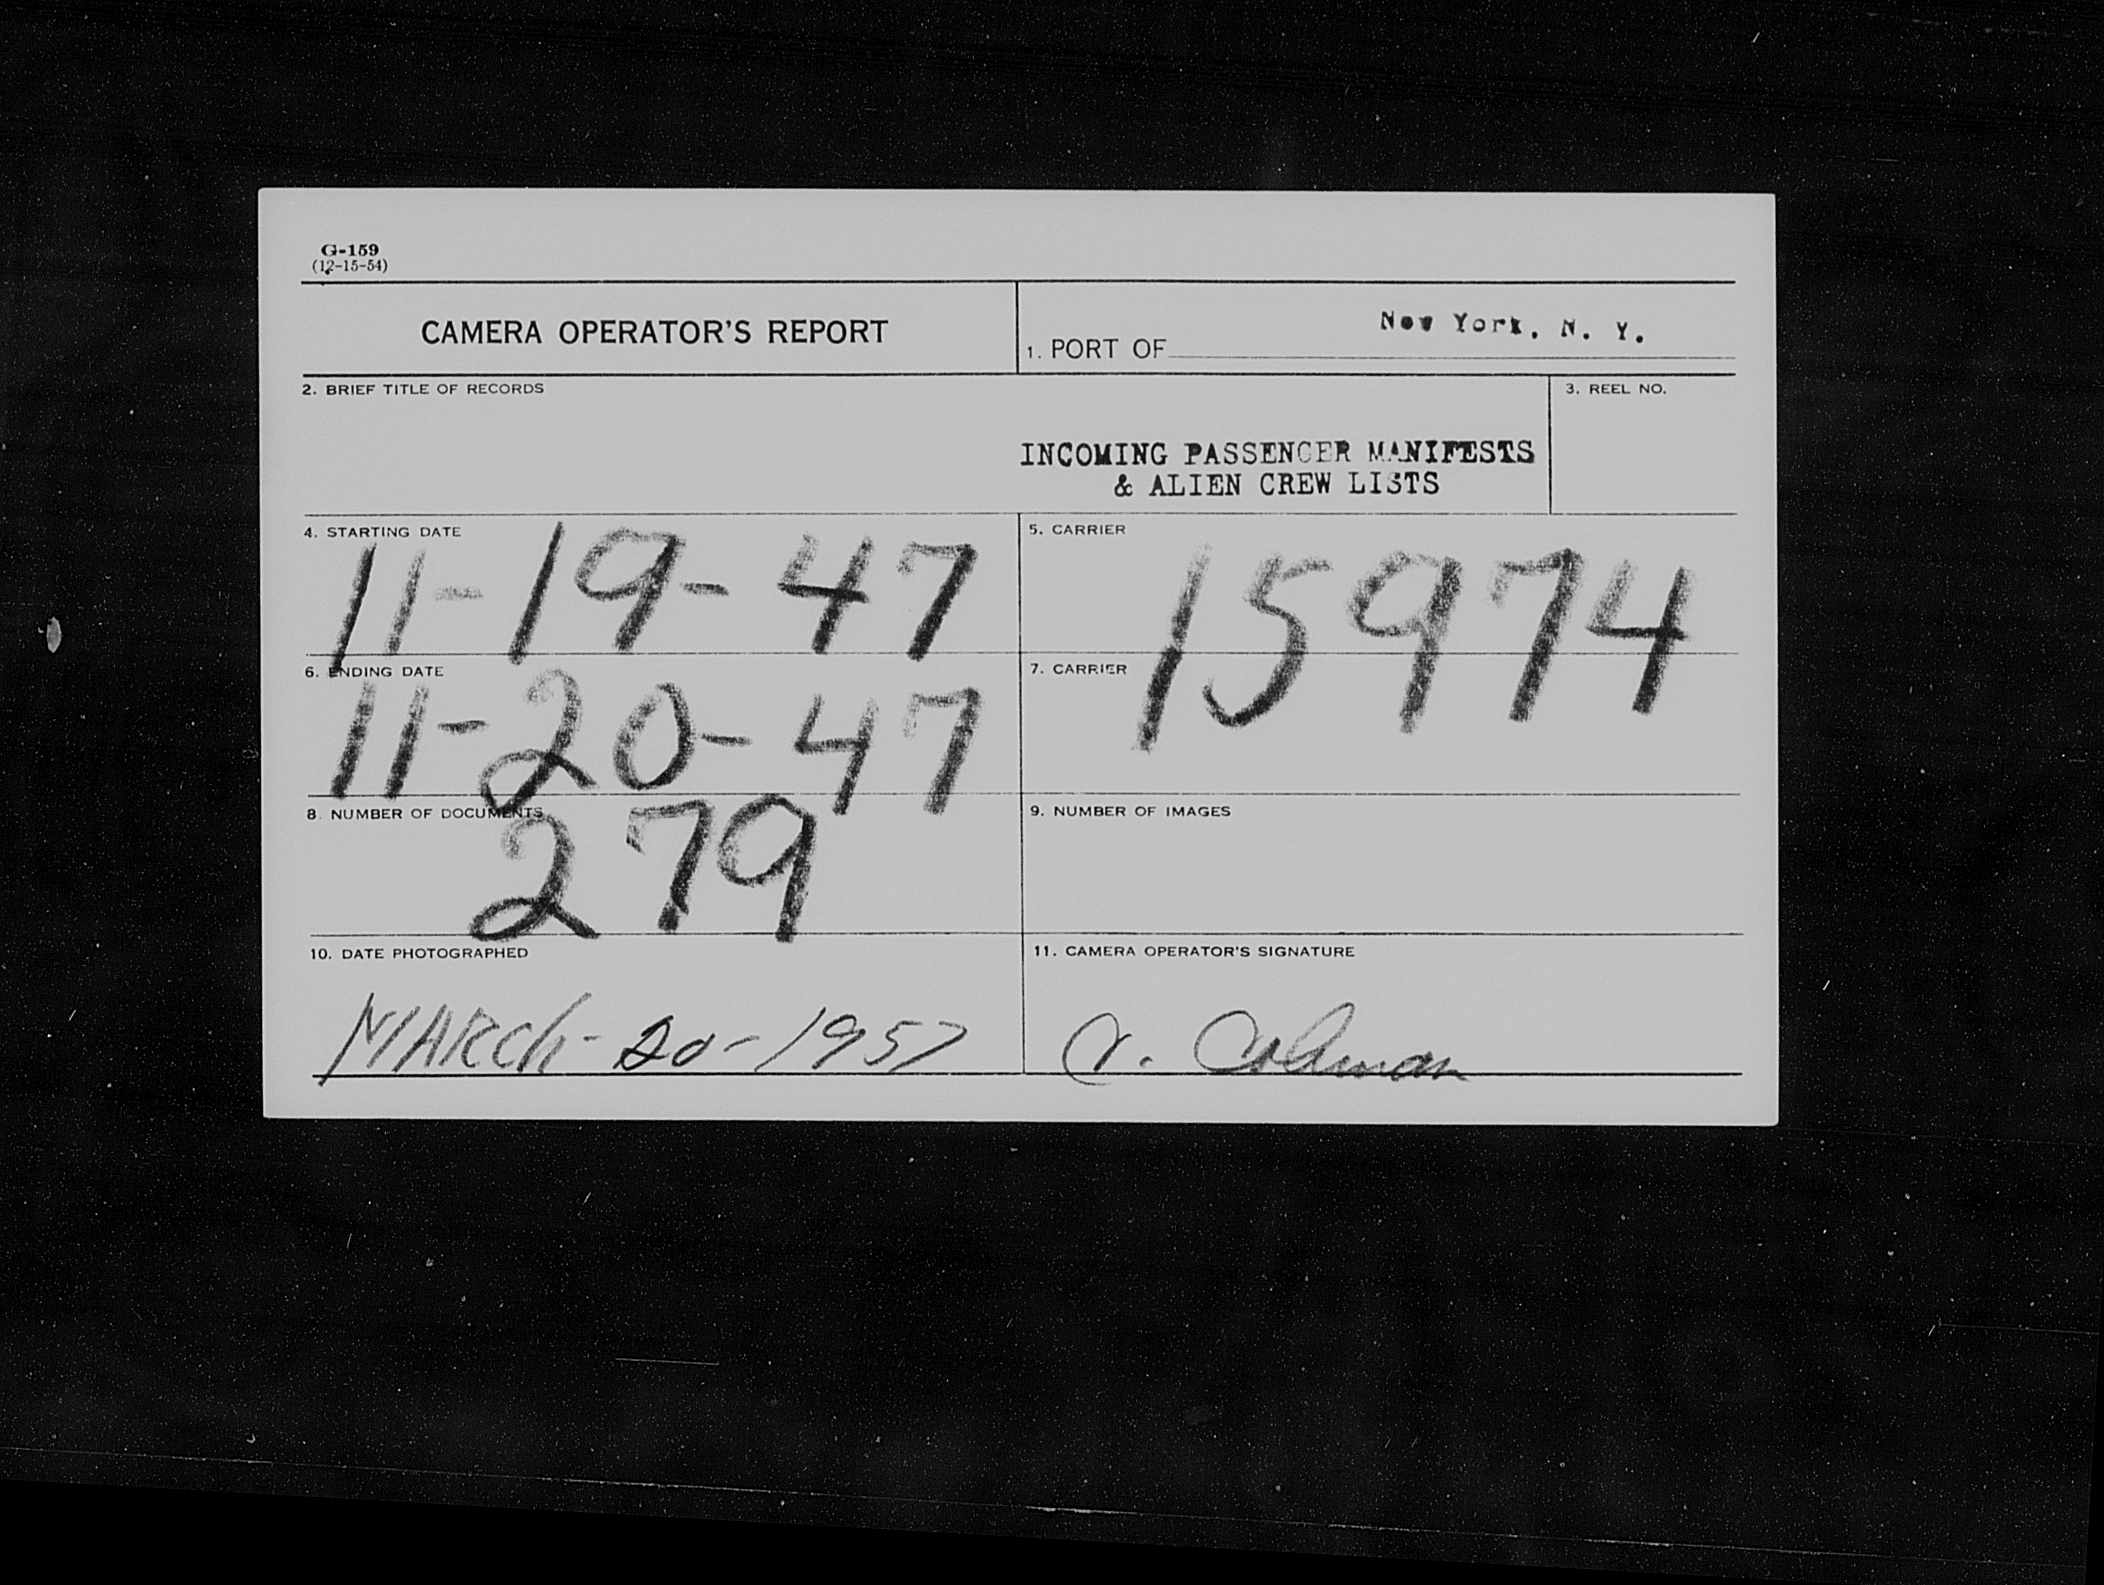 G-159
(12-15-54)
CAMERA OPERATOR'S REPORT
1. PORT OF New York, N. Y.
2. BRIEF TITLE OF RECORDS
3. REEL NO.
INCOMING PASSENGER MANIFESTS
& ALIEN CREW LISTS
4. STARTING DATE
11-19-47
5. CARRIER
15974
6. ENDING DATE
11-20-47
7. CARRIER
8. NUMBER OF DOCUMENTS
279
9. NUMBER OF IMAGES
10. DATE PHOTOGRAPHED
MARCh-20-1957
11. CAMERA OPERATOR'S SIGNATURE